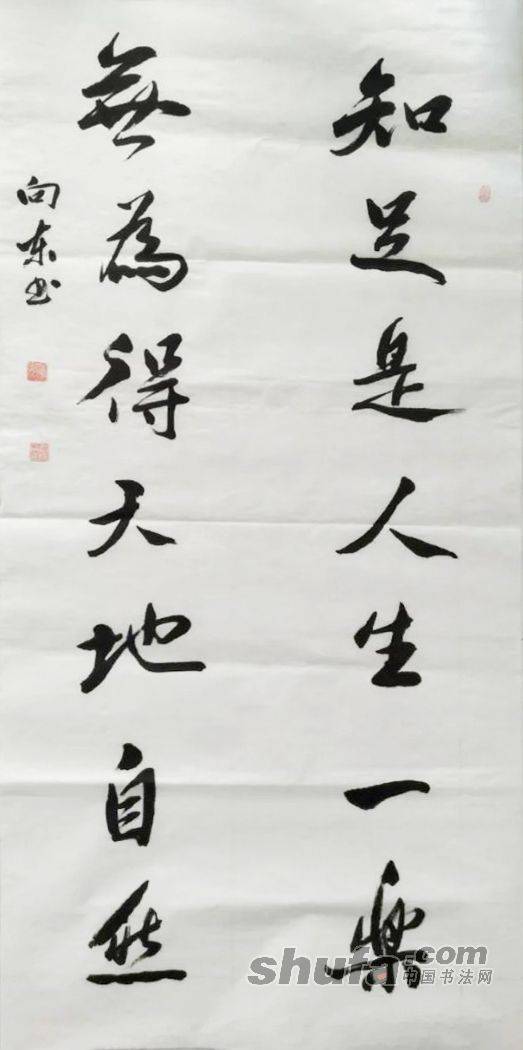 知足是人生一樂
無為得天地自然
向东书
shufa.com
中国书法网